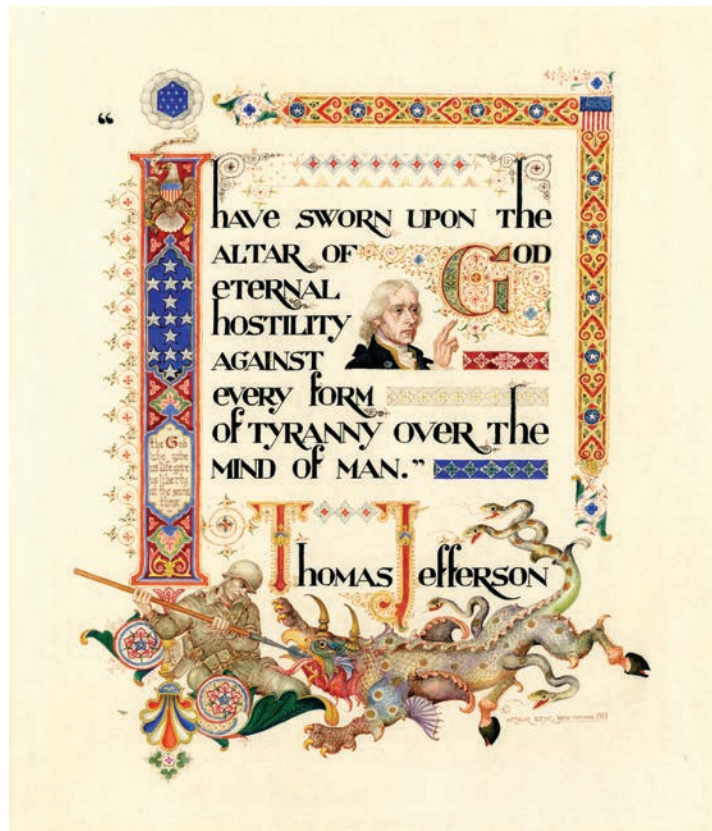 “I have SWORN UPON The
ALTAR OF GOD
eTeRNAL
hOSTILITY
AGAINST
eveRy FORM
of TYRANNY OVER The
MIND OF MAN.”
the God
who gave
us life gave
us liberty
at the same
time
Thomas Jefferson
© ARTHUR SZYK, NEW CANAAN